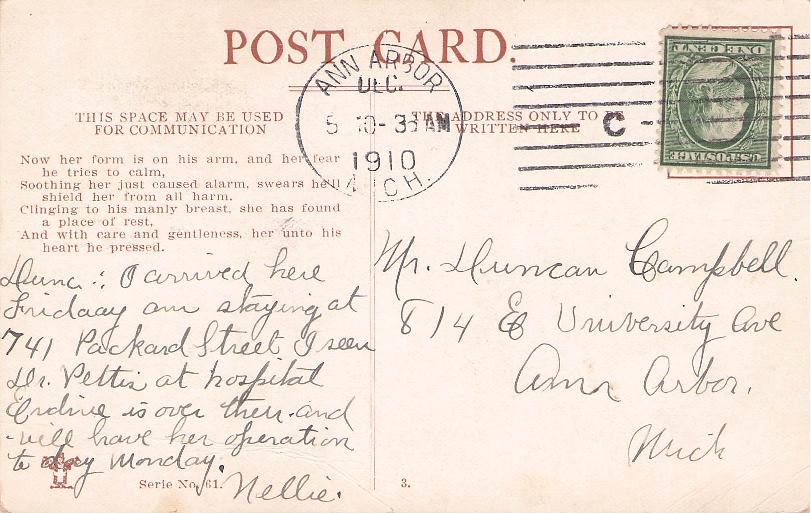 POST CARD.
ANN ARBOR
DEC.
5 10-3 AM
1910
MICH.
C
ONE CENT
U.S. POSTAGE
THIS SPACE MAY BE USED
FOR COMMUNICATION
THE ADDRESS ONLY TO
WRITTEN HERE
Now her form is on his arm, and her fear
he tries to calm,
Soothing her just caused alarm, swears he'll
shield her from all harm.
Clinging to his manly breast, she has found
a place of rest,
And with care and gentleness, her unto his
heart he pressed.
Dunc.: I arrived here
Friday am staying at
741 Packard Street I seen
Dr. Pettis at hospital
is over there and
will have her operation
to day Monday.
Nellie.
Serie No. 61.
3.
Mr. Duncan Campbell.
814 E University Ave
Ann Arbor.
Mich